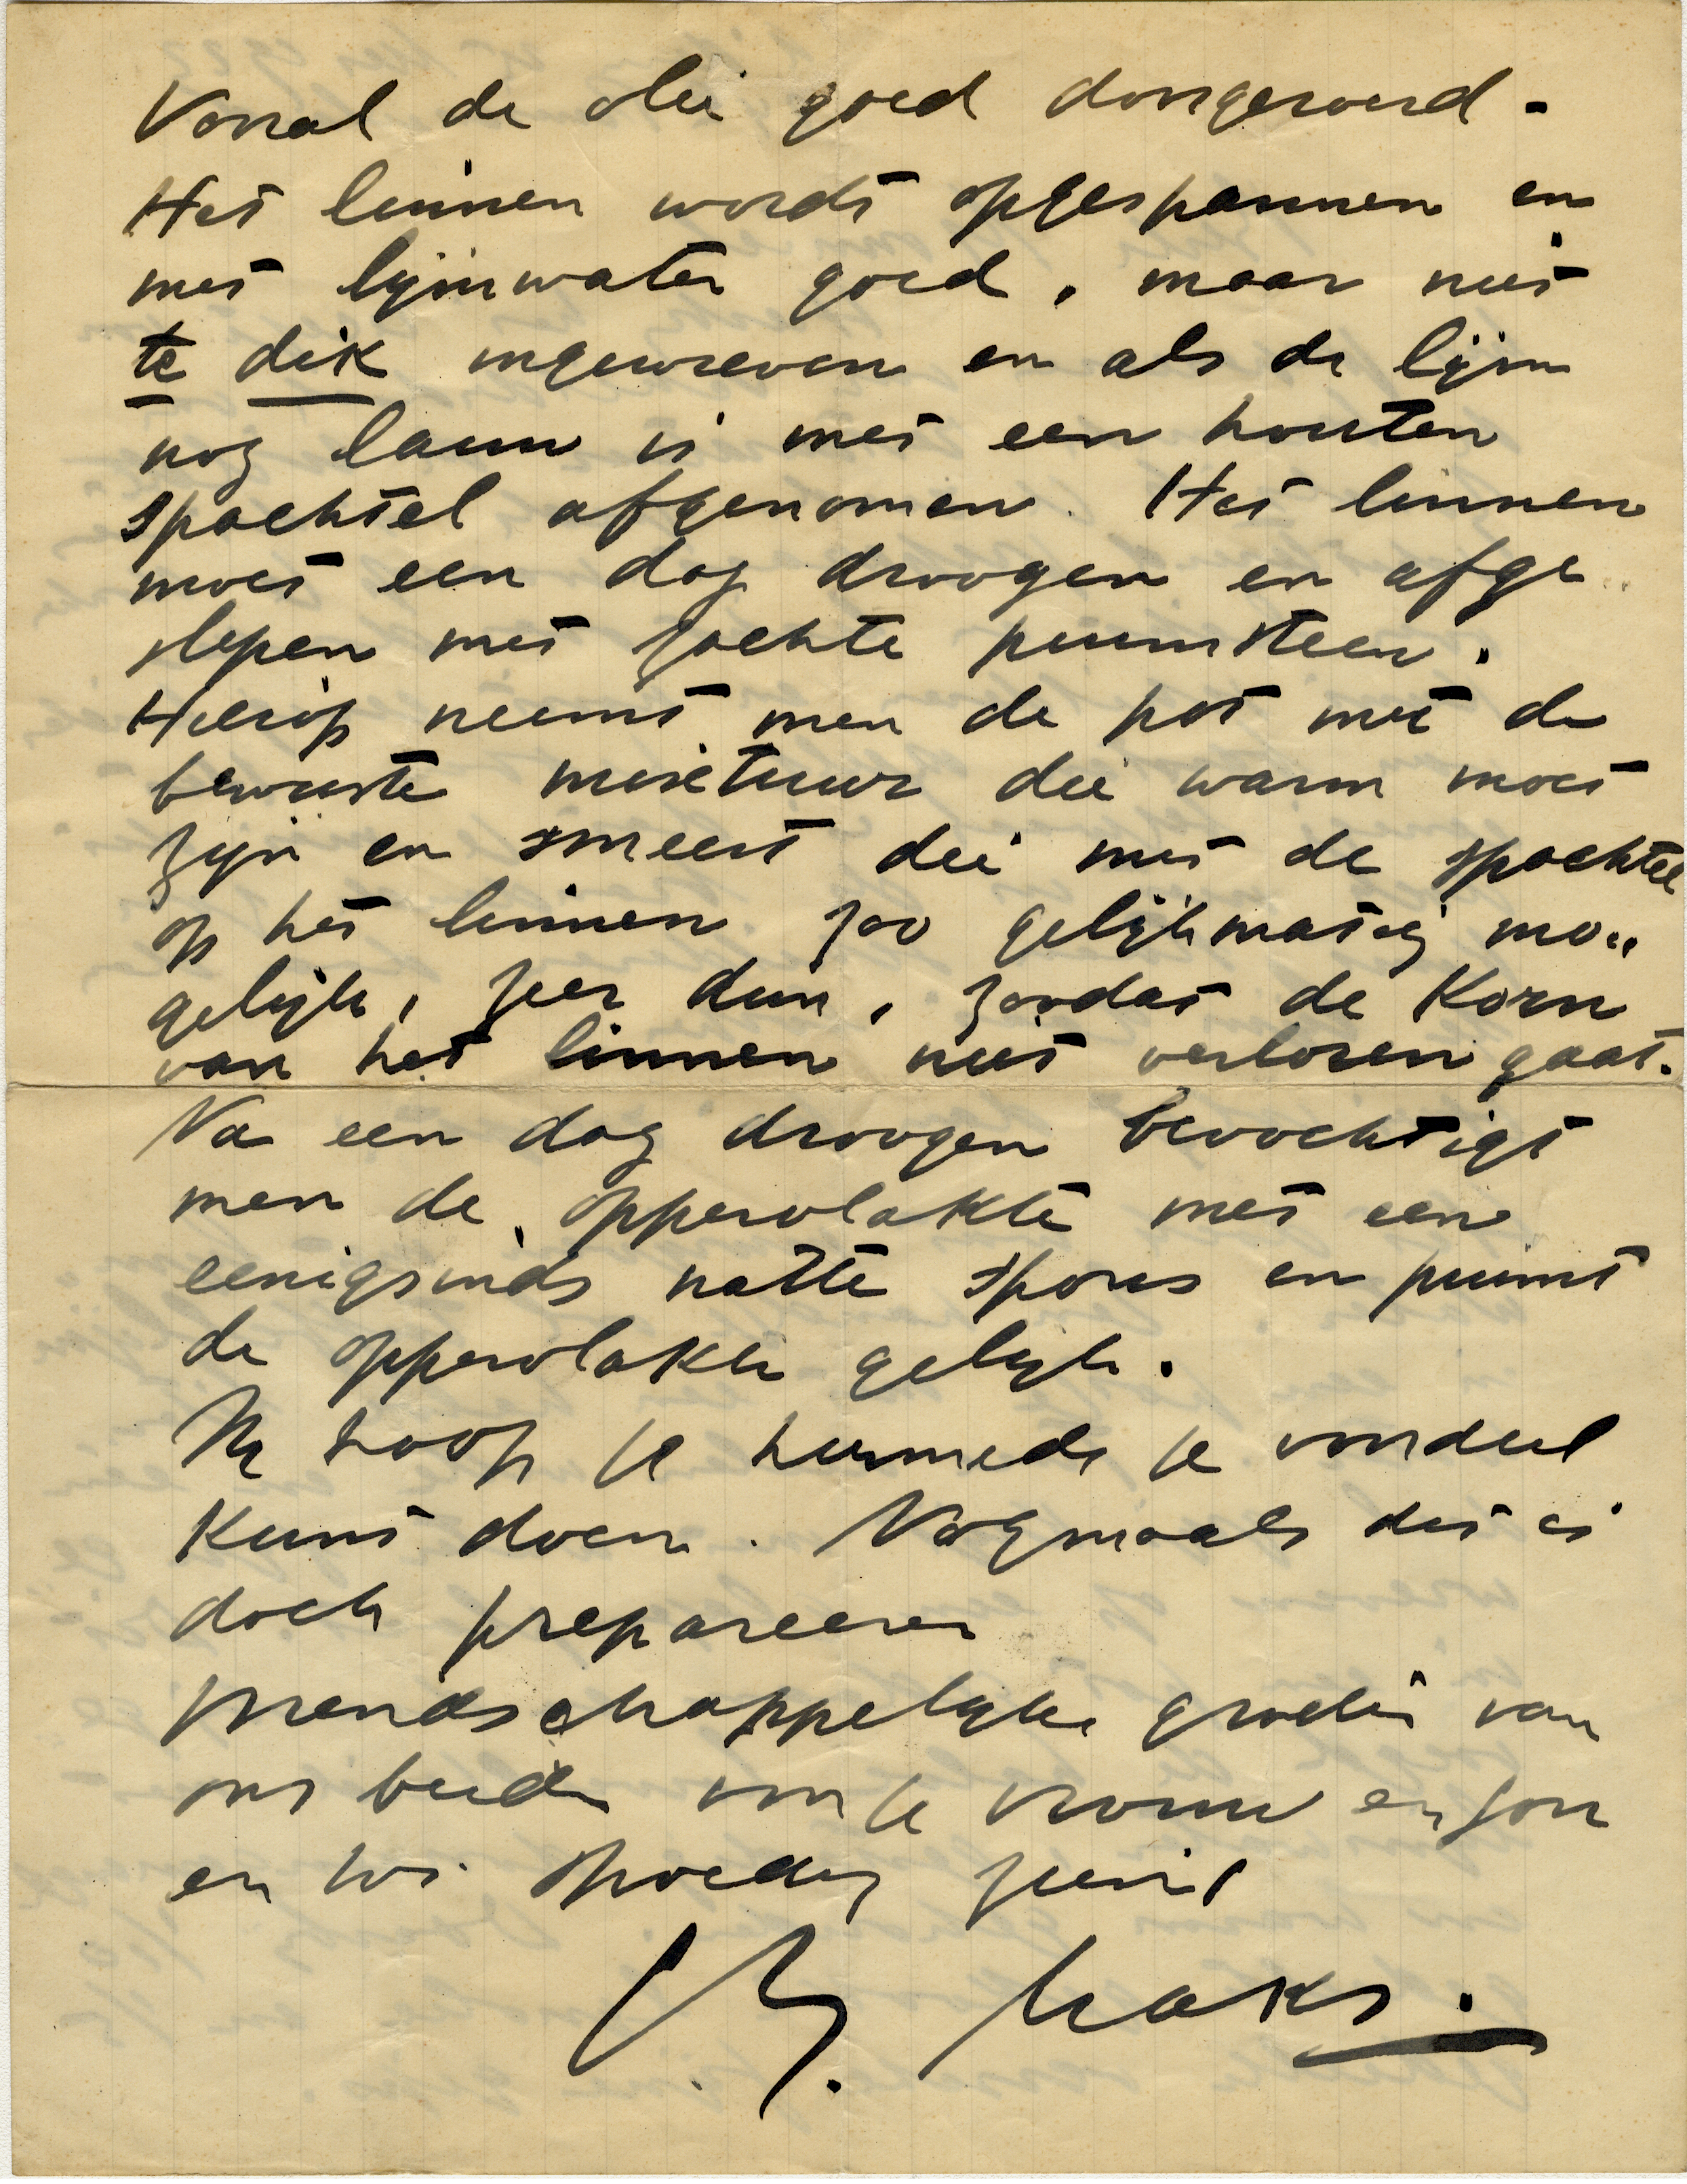 Vooral de olie goed doorgeroerd.
Het linnen wordt opgespannen en
met lijmwater goed, maar niet
te dik ingewreven en als de lijm
nog lauw is met een houten
spachtel afgenomen. Het linnen
moet een dag droogen en afge
slepen met zachte puimsteen.
Hierop neemt men de pot met de
bewuste mixtuur die warm moet
zijn en smeert die met de spachtel
op het linnen zoo gelijkmatig mo„
gelijk, zeer dun, zoodat de Korn
van het linnen niet verloren gaat.
Na een dag droogen bevochtigt
men de oppervlakte met een
eenigsinds natte spons en puimt
de oppervlakte gelijk.
Ik hoop je hiermede je voordeel
Kunt doen. Nogmaals dit is
doek prepareeren
Vriendschappelijke groeten van
ons beide voor je vrouw en zoon
en tot spoedig ziens
C. J. Maks.